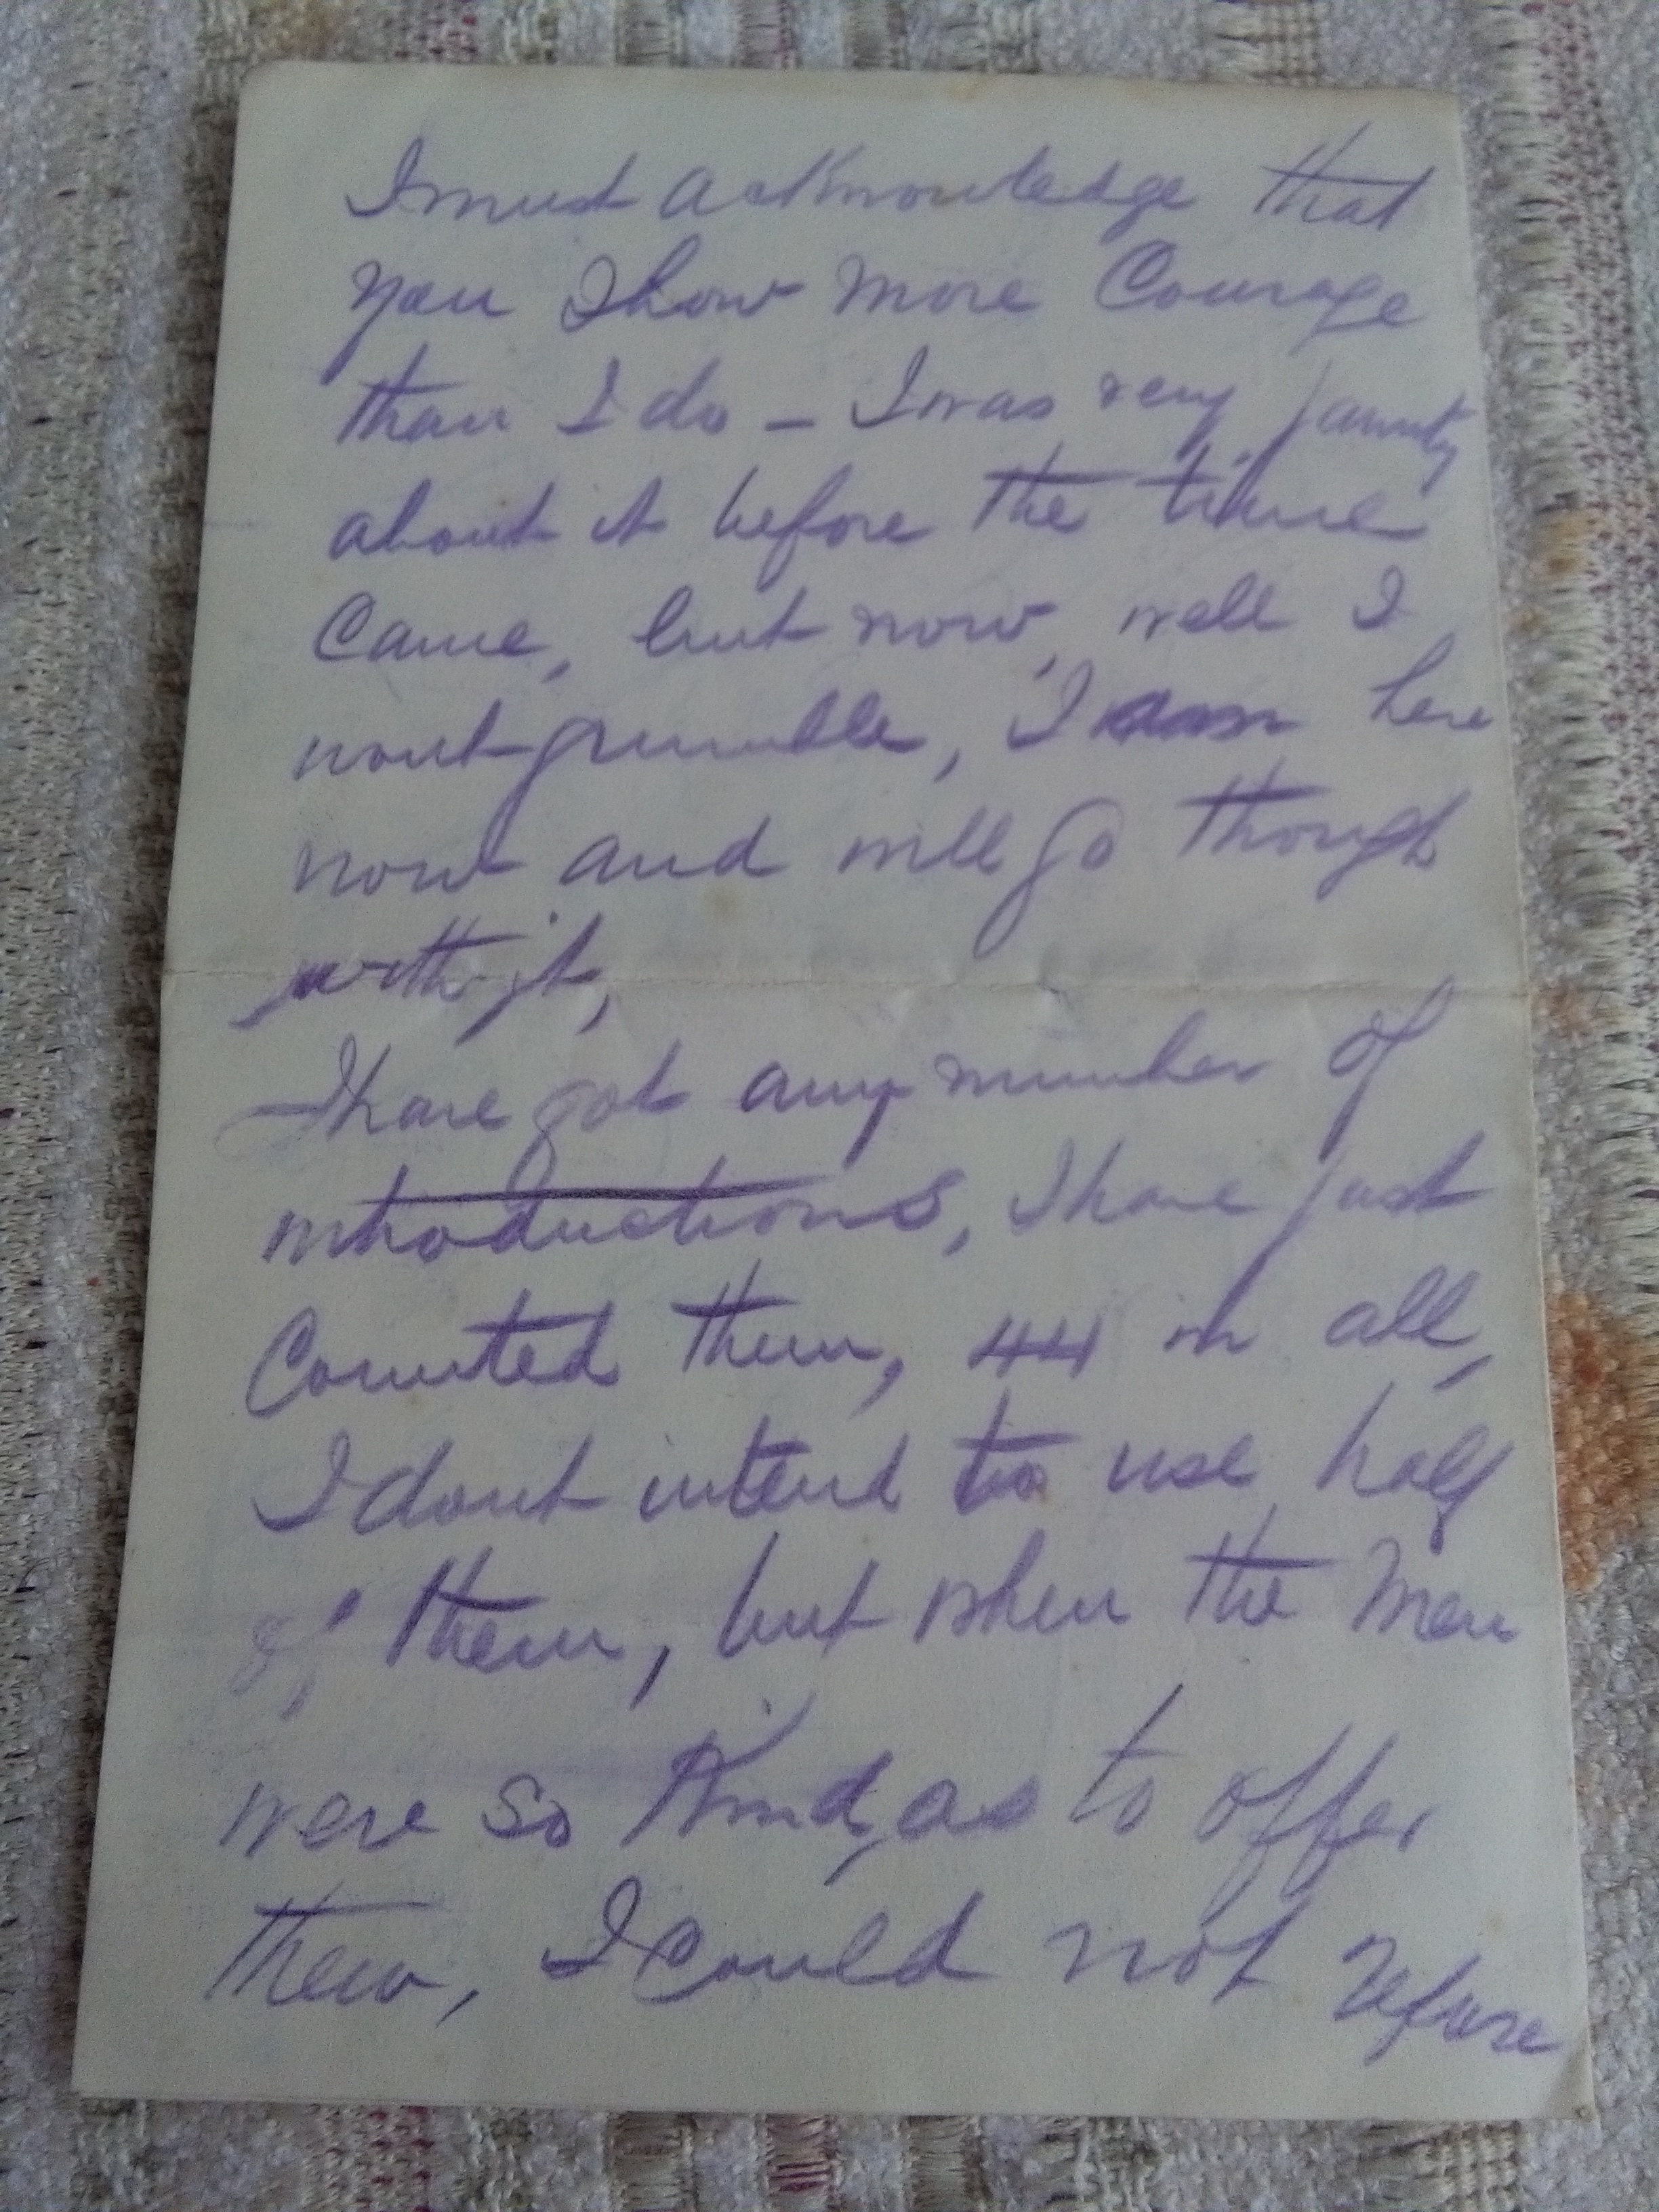 I must acknowledge that
you show more Courage
than I do – I was very jaunty
about it before the time
Came, but now, well I
wont grumble, I am here
now and will go though
with it,
I have got any number of
introductions, I have just
Counted them, 44 in all,
I dont intend to use half
of them, but when the Men
were so Kind, as to offer
them, I could not refuse